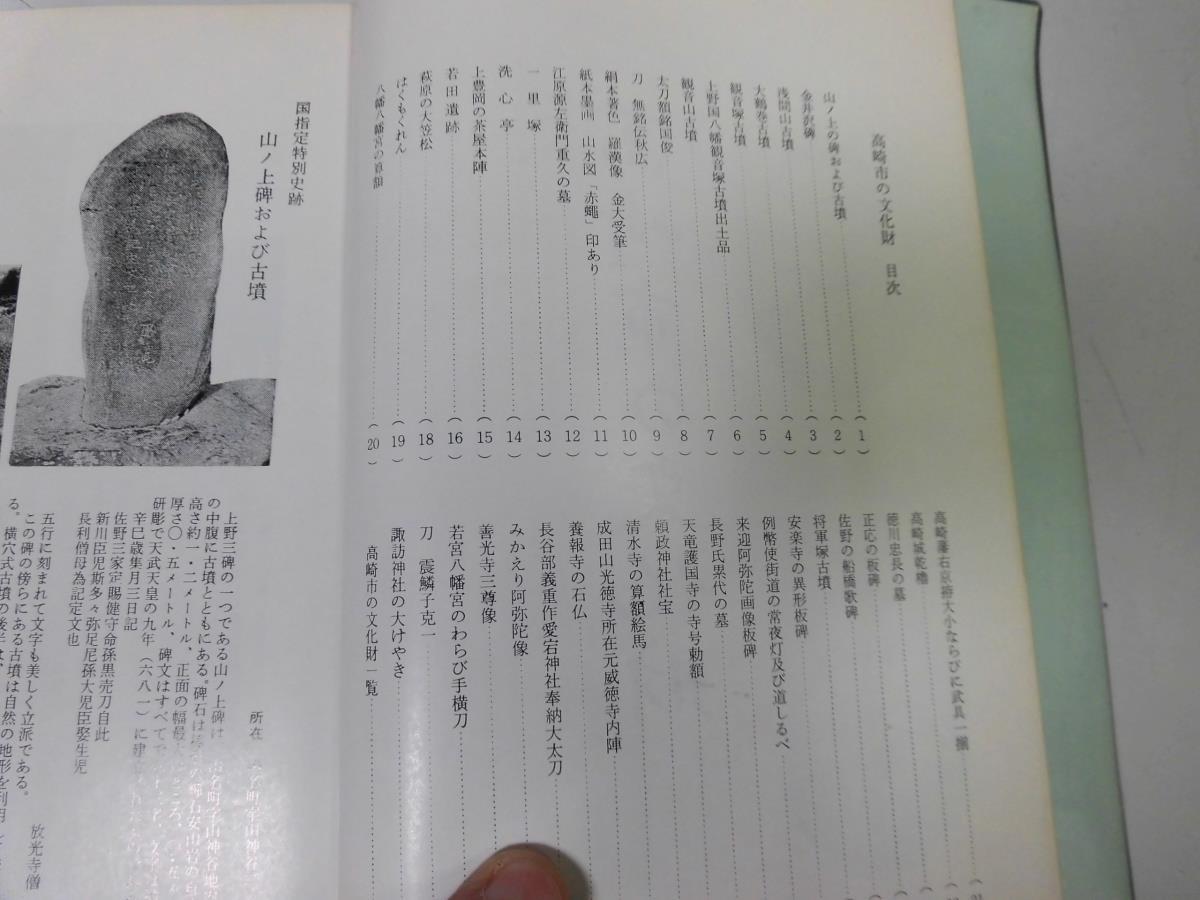 高崎市の文化財 目次
山ノ上の碑および古墳………(1)
金井沢碑………(2)
浅間山古墳………(3)
大鶴巻古墳………(4)
観音塚古墳………(5)
上野国八幡観音塚古墳出土品………(6)
観音山古墳………(7)
太刀額銘国俊………(8)
刀 無銘伝秋広………(9)
絹本著色 羅漢像 金大受筆………(10)
紙本墨画 山水図「赤蠅」印あり………(11)
江原源左衛門重久の墓………(12)
一里塚………(13)
洗心亭………(14)
上豊岡の茶屋本陣………(15)
若田遺跡………(16)
萩原の大笠松………(18)
はくもくれん………(19)
八幡八幡宮の算額………(20)
高崎藩右京拵大小ならびに武具一揃
高崎城乾櫓
徳川忠長の墓
正応の板碑
佐野の船橋歌碑
将軍塚古墳
安楽寺の異形板碑
例幣使街道の常夜灯及び道しるべ
来迎阿弥陀画像板碑
長野氏累代の墓
天竜護国寺の寺号勅額
頼政神社社宝
清水寺の算額絵馬
成田山光徳寺所在元威徳寺内陣
長谷部義重作愛宕神社奉納大太刀
養報寺の石仏
みかえり阿弥陀像
善光寺三尊像
若宮八幡宮のわらび手横刀
刀 震鱗子克一
諏訪神社の大けやき
高崎市の文化財一覧
国指定特別史跡
山ノ上碑および古墳
所在
上野三碑の一つである山ノ上碑は
の中腹に古墳とともにある。碑石は
高さ約一・二メートル、正面の幅最
厚さ〇・五メートル、碑文はすべて
研彫で天武天皇の九年(六八一)に建
辛巳歳集月三日記
佐野三家定賜健守命孫黒売刀自此
新川臣児斯多々弥足尼孫大児臣娶生児
長利僧母為記定文也
放光寺僧
五行に刻まれて文字も美しく立派である。
この碑の傍らにある古墳は自然の地形を利用
る。横穴式古墳の後半は、